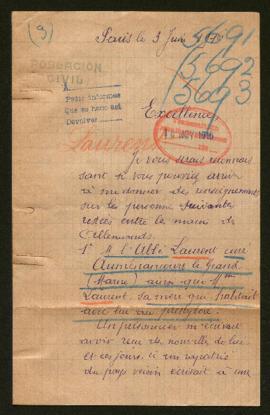 (3)
Paris le 3 Juin
5691
5692
5693
POBLACIÓN
CIVIL
Pedir informes
Que se hace así
Devolver
Excellence
18 NOV 1916
Laurent
Je vous serais reconnais
sant si vous pouviez
à me donner des renseignements
sur la personne suivante
restée entre la main des
Allemands.
1° M l'Abbé Laurent curé
Auménancourt le Grand
(Marne) ainsi que Mme
Laurent, sa mère qui habitait
avec lui au presbytère.
Un prisonnier m'écrivait
avoir reçu des nouvelles de lui
et ces jours-ci un rapatrié
du pays voisin écrivait à une